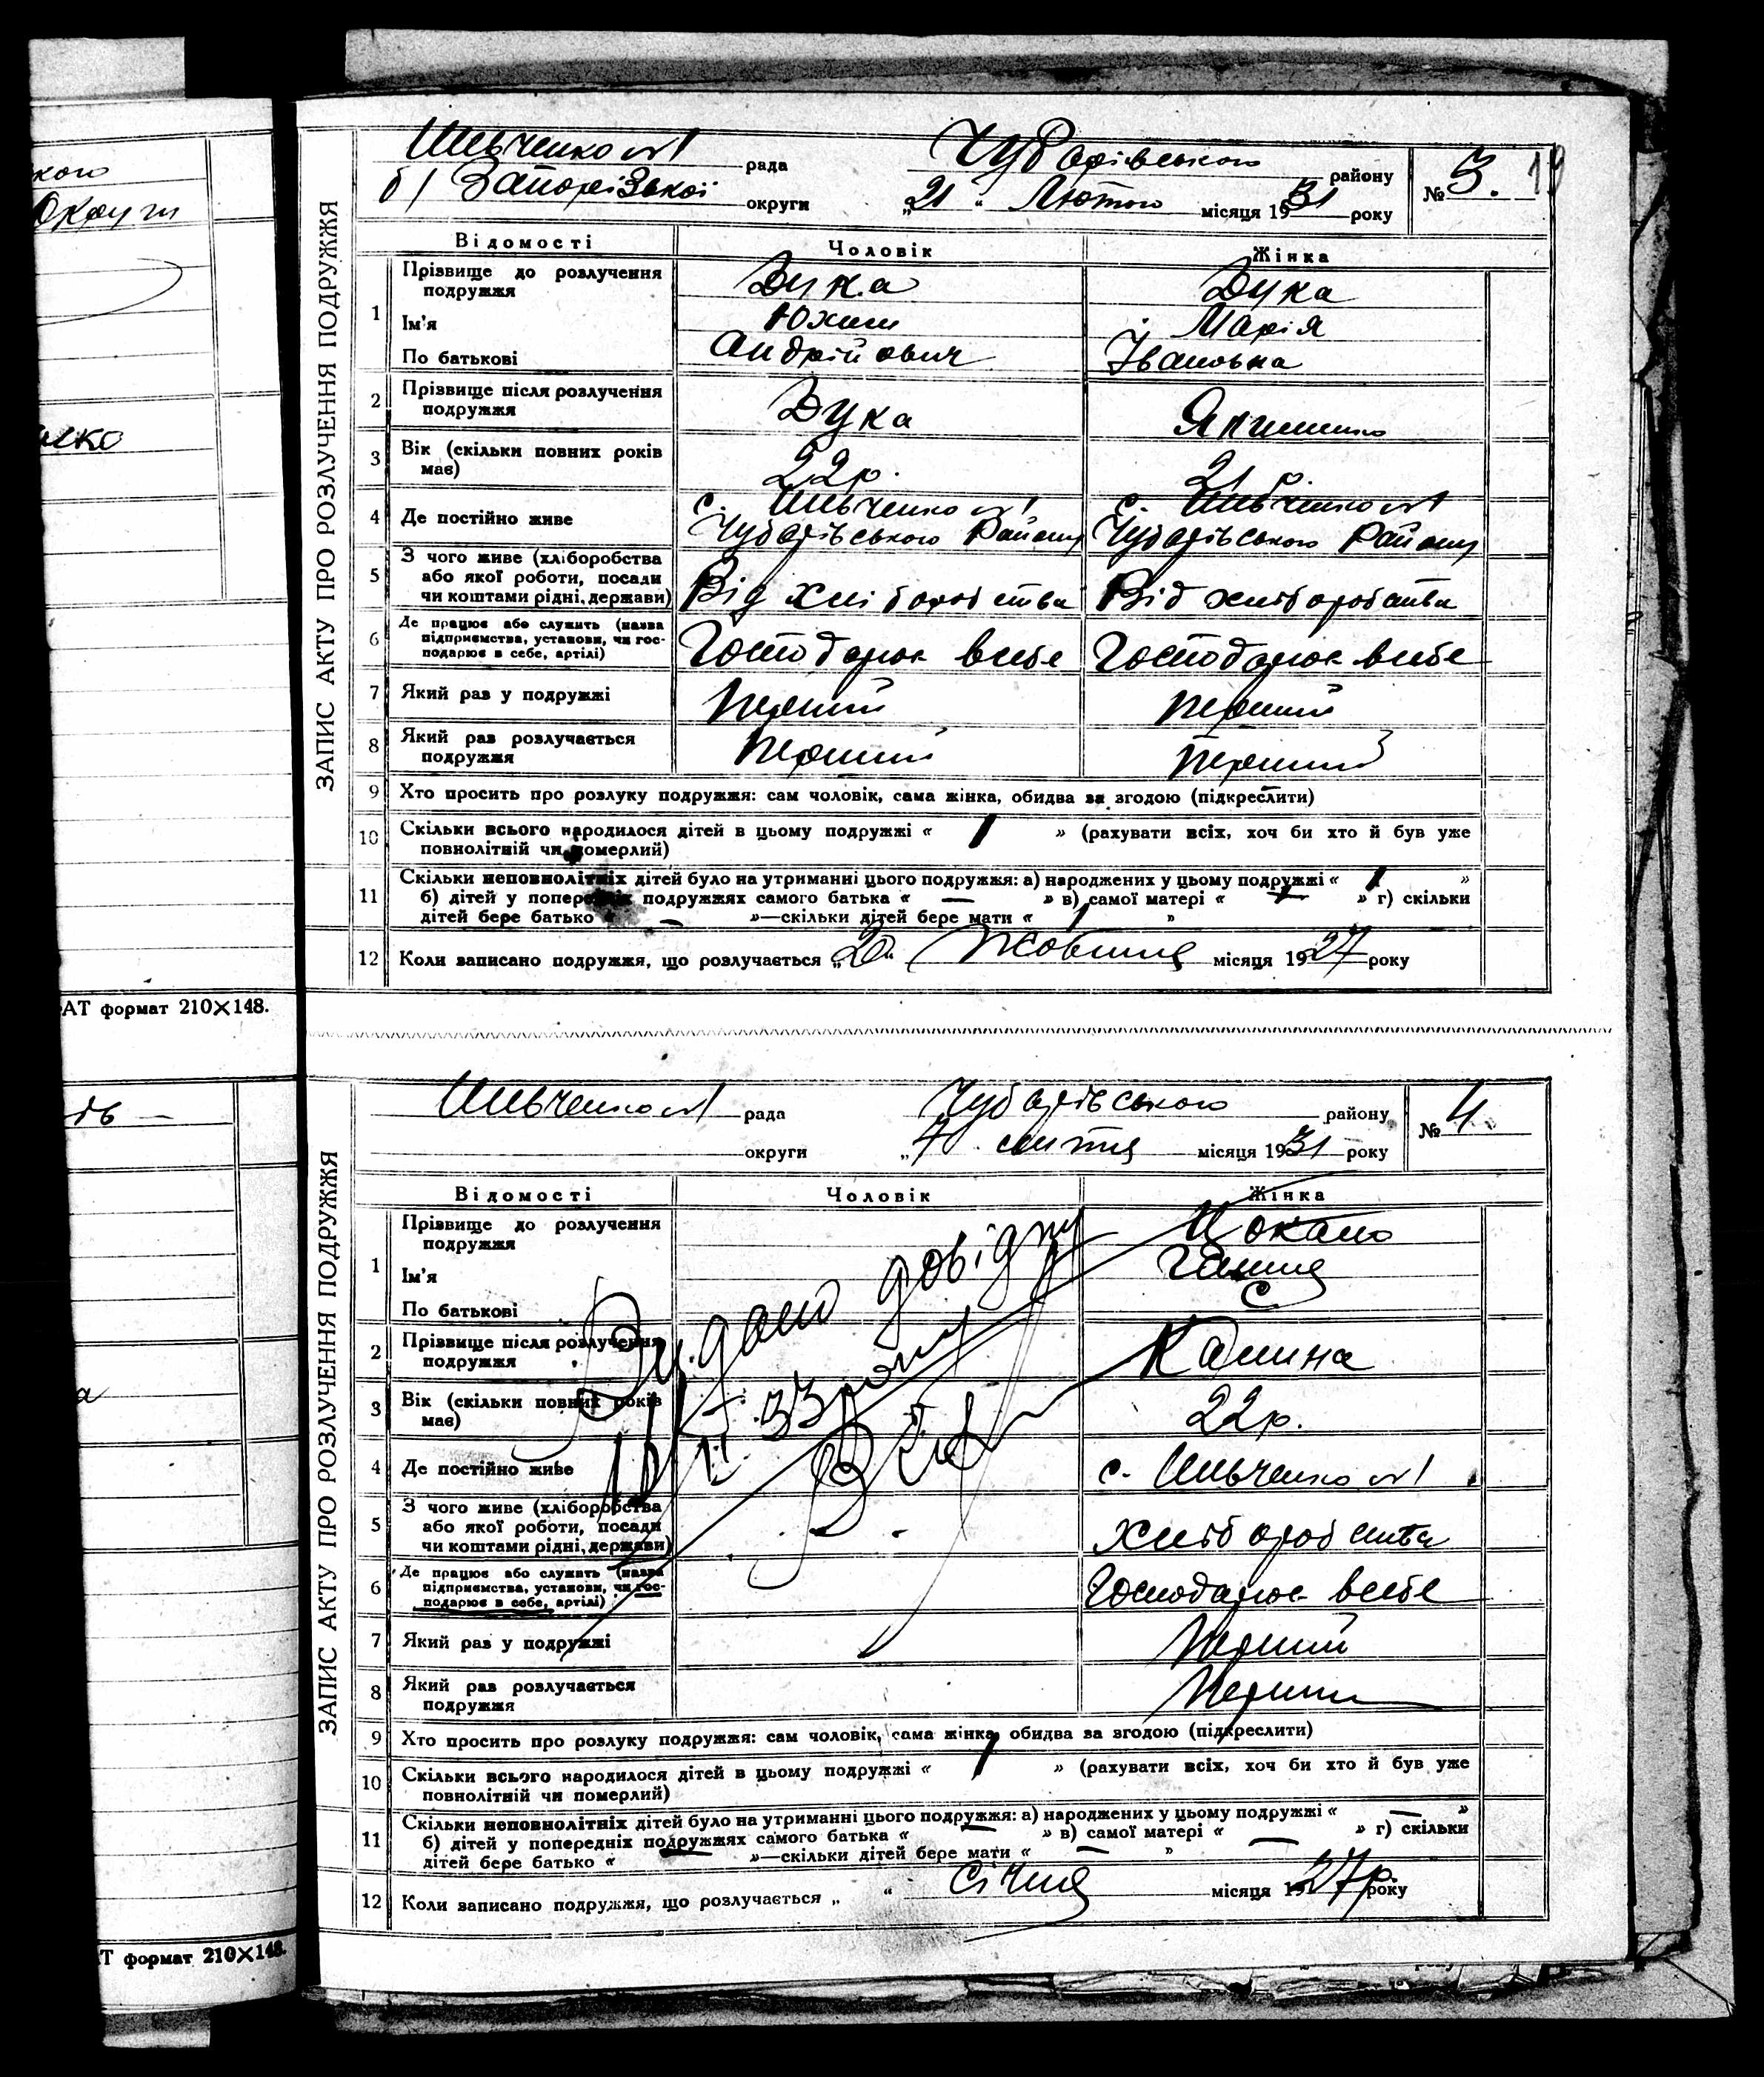 кого
Округи
АТ формат 210×148.
Т формат 210×148.
ЗАПИС АКТУ ПРО РОЗЛУЧЕННЯ ПОДРУЖЖЯ
Шевченко №1 рада Чубарівського району № 3. 19
б/ Запорізької округи „21“ Лютого місяця 1931 року
Відомості Чоловік Жінка
1 Прізвище до розлучення подружжя Дука Дука
Ім'я Юхим Марія
По батькові Андрійович Івановна
2 Прізвище після розлучення подружжя Дука
3 Вік (скільки повних років має) 22р. 21 р.
4 Де постійно живе с. Шевченко №1 с. Шевченко №1
Чубарівського Району Чубарівського Району
5 З чого живе (хліборобства або якої роботи, посади чи коштами рідні, держави) Від хліборобства Від хліборобства
6 Де працює або служить (назва підприємства, установи, чи господарює в себе, артілі) Господарює всебе Господарює всебе
7 Який раз у подружжі Перший Перший
8 Який раз розлучається подружжя Перший Перший
9 Хто просить про розлуку подружжя: сам чоловік, сама жінка, обидва за згодою (підкреслити)
10 Скільки всього народилося дітей в цьому подружжі « 1 » (рахувати всіх, хоч би хто й був уже
повнолітній чи померлий)
11 Скільки неповнолітніх дітей було на утриманні цього подружжя: а) народжених у цьому подружжі « 1 »
б) дітей у попередніх подружжях самого батька « — » в) самої матері « — » г) скільки
дітей бере батько « — »—скільки дітей бере мати « 1 »
12 Коли записано подружжя, що розлучається „20“ Жовтня місяця 1927 року
ЗАПИС АКТУ ПРО РОЗЛУЧЕННЯ ПОДРУЖЖЯ
Шевченко №1 рада Чубарівського району № 4
округи „7 липня місяця 1931 року
Відомості Чоловік Жінка
1 Прізвище до розлучення подружжя
Ім'я Ганна
По батькові С
2 Прізвище після розлучення подружжя Калина
3 Вік (скільки повних років має) 22р.
4 Де постійно живе с. Шевченко №1
5 З чого живе (хліборобства або якої роботи, посади чи коштами рідні, держави) хліборобства
6 Де працює або служить (назва підприємства, установи, чи господарює в себе, артілі) Господарює всебе
7 Який раз у подружжі Перший
8 Який раз розлучається подружжя Перший
Видано довідку
33 року
9 Хто просить про розлуку подружжя: сам чоловік, сама жінка, обидва за згодою (підкреслити)
10 Скільки всього народилося дітей в цьому подружжі « 1 » (рахувати всіх, хоч би хто й був уже
повнолітній чи померлий)
11 Скільки неповнолітніх дітей було на утриманні цього подружжя: а) народжених у цьому подружжі « — »
б) дітей у попередніх подружжях самого батька « — » в) самої матері « — » г) скільки
дітей бере батько « — »—скільки дітей бере мати « — »
12 Коли записано подружжя, що розлучається „ “ Січня місяця 1927р. року